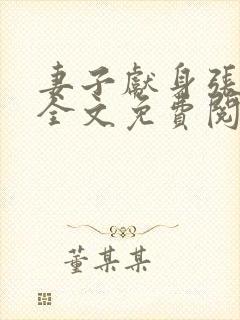 妻子獻身張
全文免費閱
董某某